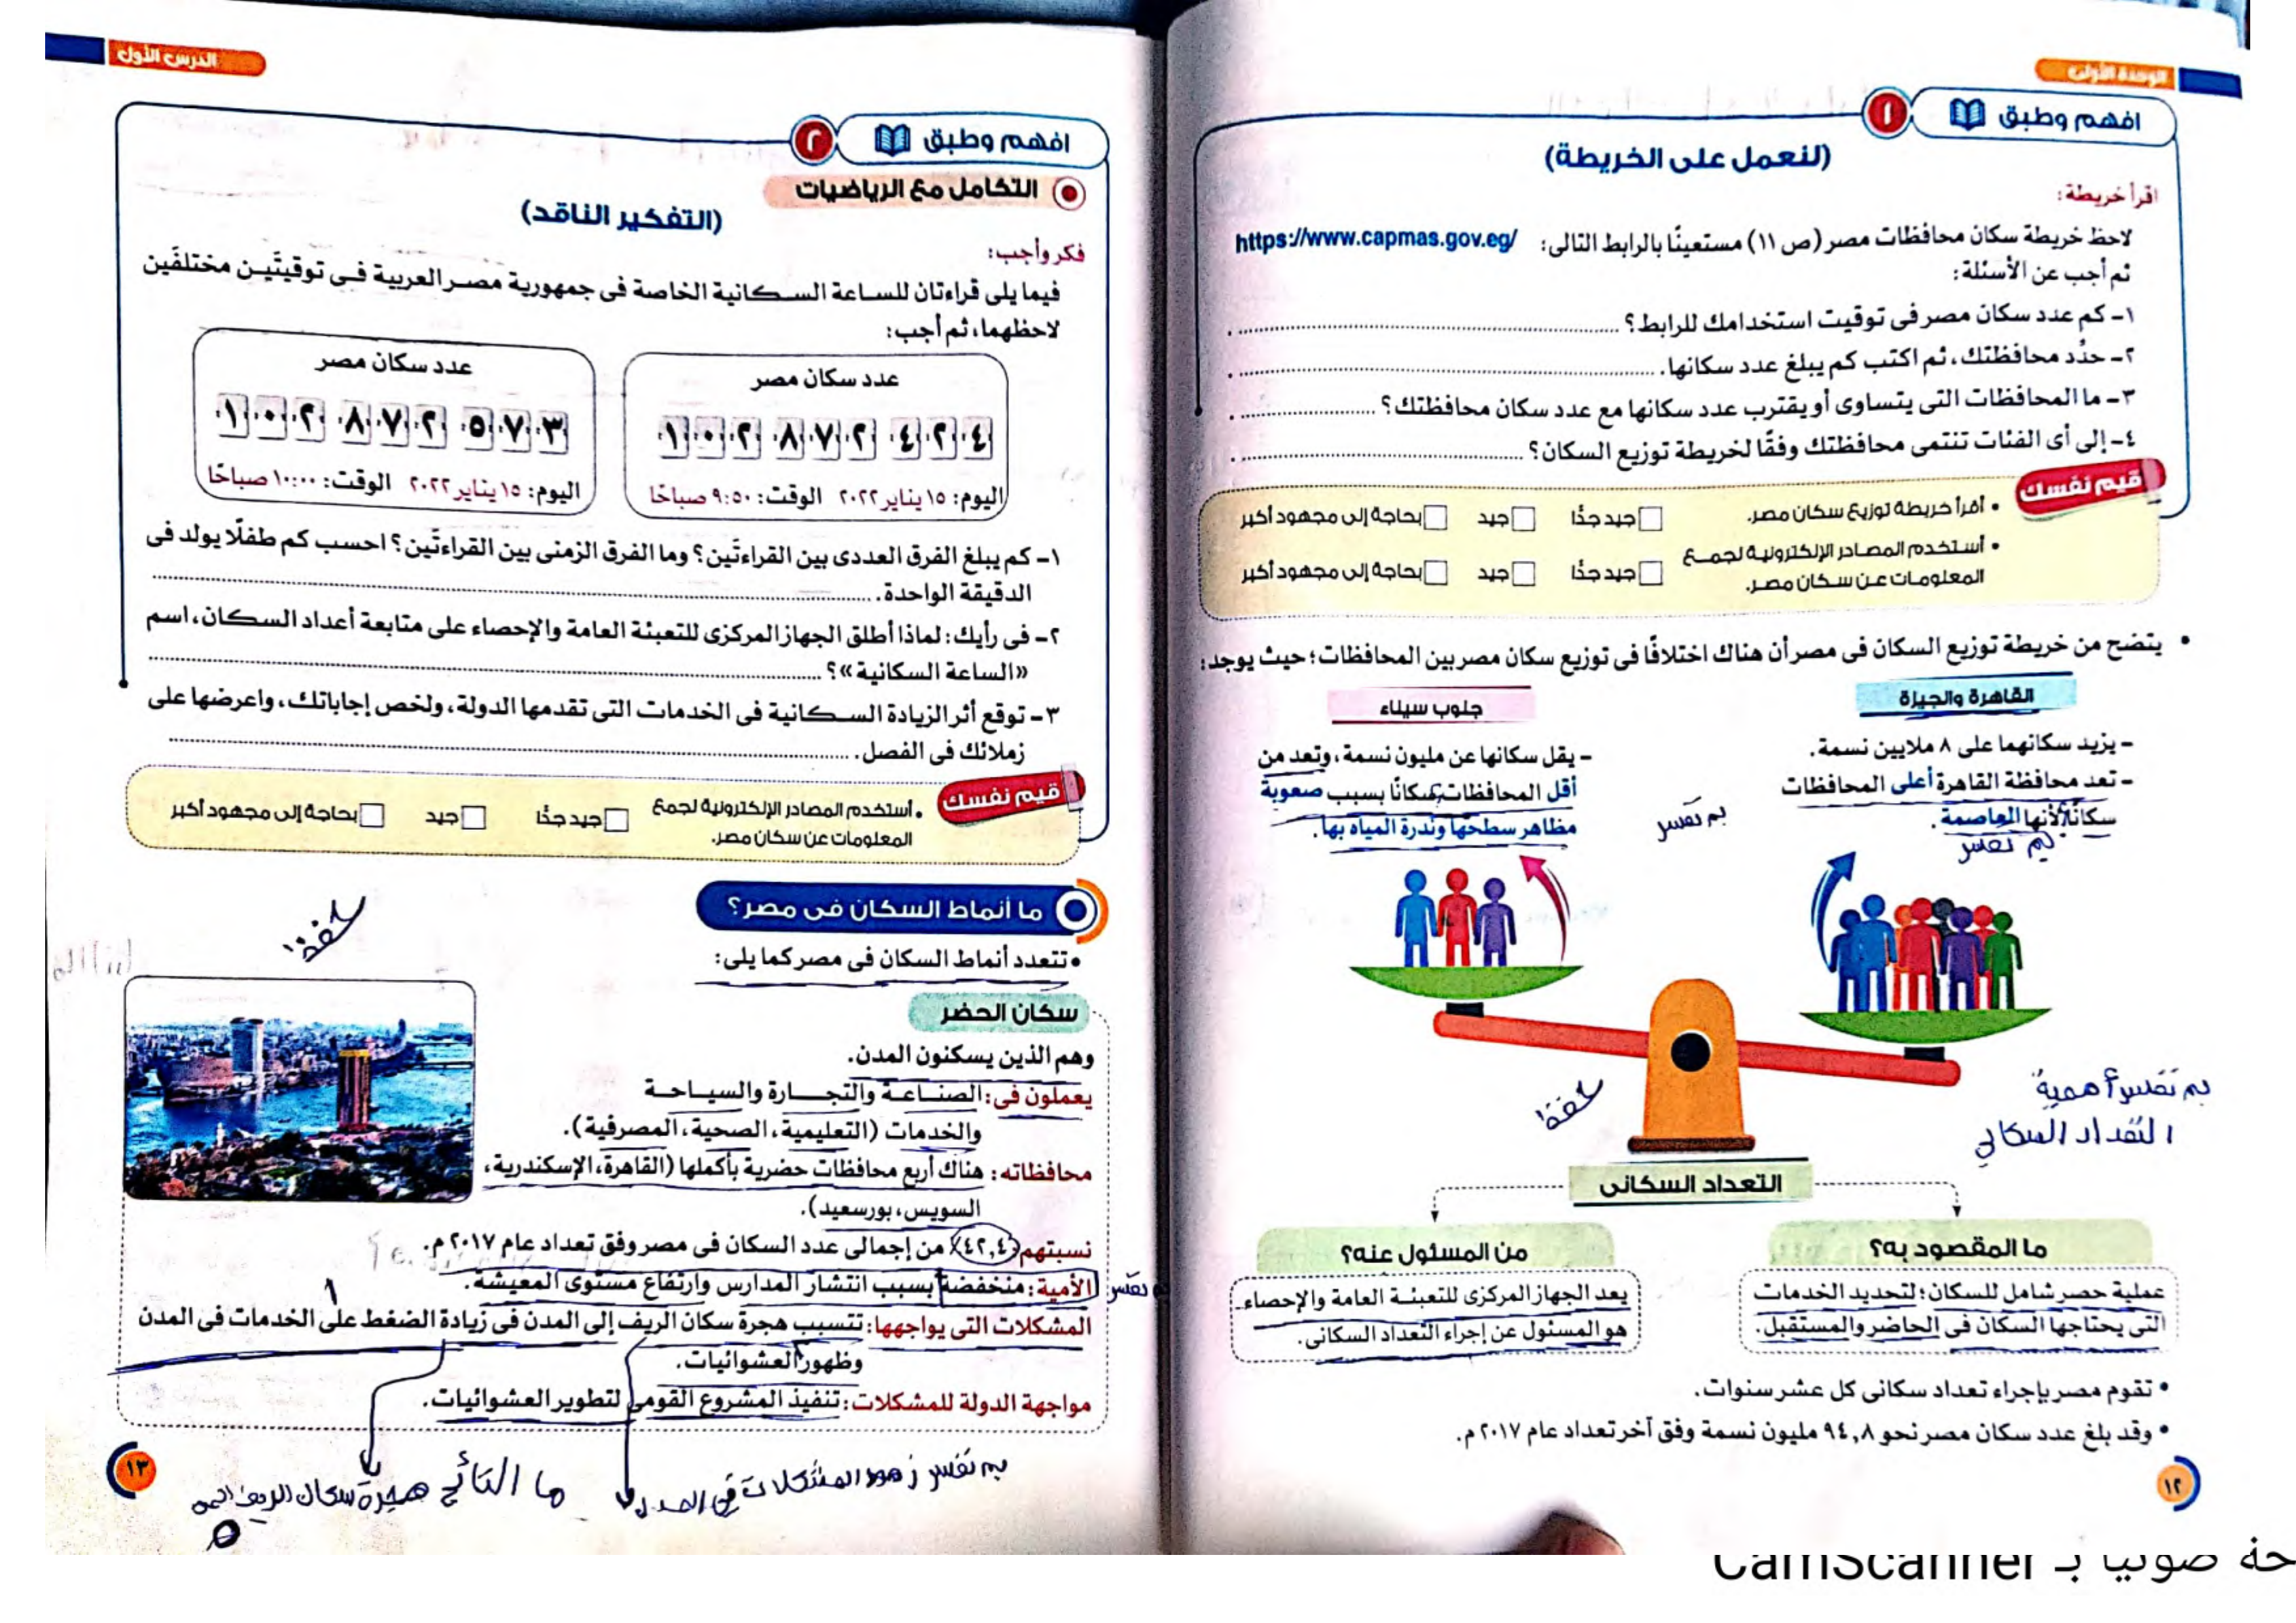 الوحدة الأولى
افهم وطبق
١
(لنعمل على الخريطة)
اقرأ خريطة:
لاحظ خريطة سكان محافظات مصر (ص ١١) مستعينًا بالرابط التالى: https://www.capmas.gov.eg/
ثم أجب عن الأسئلة:
١- كم عدد سكان مصر فى توقيت استخدامك للرابط؟
٢- حدِّد محافظتك، ثم اكتب كم يبلغ عدد سكانها.
٣- ما المحافظات التى يتساوى أو يقترب عدد سكانها مع عدد سكان محافظتك؟
٤- إلى أى الفئات تنتمى محافظتك وفقًا لخريطة توزيع السكان؟
قيم نفسك
• أقرأ خريطة توزيع سكان مصر. جيد جدًّا جيد بحاجة إلى مجهود أكبر
• أستخدم المصادر الإلكترونية لجمع
المعلومات عن سكان مصر. جيد جدًّا جيد بحاجة إلى مجهود أكبر
• يتضح من خريطة توزيع السكان فى مصر أن هناك اختلافًا فى توزيع سكان مصر بين المحافظات؛ حيث يوجد:
القاهرة والجيزة
- يزيد سكانهما على ٨ ملايين نسمة.
- تعد محافظة القاهرة أعلى المحافظات
سكانًا؛ لأنها العاصمة.
بم تفسر
جنوب سيناء
- يقل سكانها عن مليون نسمة، وتعد من
أقل المحافظات سكانًا بسبب صعوبة
مظاهر سطحها وندرة المياه بها.
بم تفسر
بم تفسر أهمية
التعداد السكاني
التعداد السكانى
ما المقصود به؟
عملية حصر شامل للسكان؛ لتحديد الخدمات
التى يحتاجها السكان فى الحاضر والمستقبل.
من المسئول عنه؟
يعد الجهاز المركزى للتعبئة العامة والإحصاء
هو المسئول عن إجراء التعداد السكانى.
• تقوم مصر بإجراء تعداد سكانى كل عشر سنوات.
• وقد بلغ عدد سكان مصر نحو ٩٤,٨ مليون نسمة وفق آخر تعداد عام ٢٠١٧ م.
١٢
الدرس الأول
افهم وطبق
٢
التكامل مع الرياضيات
(التفكير الناقد)
فكر وأجب:
فيما يلى قراءتان للساعة السكانية الخاصة فى جمهورية مصر العربية فى توقيتَين مختلفَين
لاحظهما، ثم أجب:
عدد سكان مصر
١٠٢ ٨٧٢ ٤٢٤
اليوم: ١٥ يناير ٢٠٢٢ الوقت: ٩:٥٠ صباحًا
عدد سكان مصر
١٠٢ ٨٧٢ ٥٧٣
اليوم: ١٥ يناير ٢٠٢٢ الوقت: ١٠:٠٠ صباحًا
١- كم يبلغ الفرق العددى بين القراءتَين؟ وما الفرق الزمنى بين القراءتَين؟ احسب كم طفلًا يولد فى
الدقيقة الواحدة.
٢- فى رأيك: لماذا أطلق الجهاز المركزى للتعبئة العامة والإحصاء على متابعة أعداد السكان، اسم
«الساعة السكانية»؟
٣- توقع أثر الزيادة السكانية فى الخدمات التى تقدمها الدولة، ولخص إجاباتك، واعرضها على
زملائك فى الفصل.
قيم نفسك
• أستخدم المصادر الإلكترونية لجمع
المعلومات عن سكان مصر. جيد جدًّا جيد بحاجة إلى مجهود أكبر
ما أنماط السكان فى مصر؟
• تتعدد أنماط السكان فى مصر كما يلى:
سكان الحضر
وهم الذين يسكنون المدن.
يعملون فى: الصناعة والتجارة والسياحة
والخدمات (التعليمية، الصحية، المصرفية).
محافظاته: هناك أربع محافظات حضرية بأكملها (القاهرة، الإسكندرية،
السويس، بورسعيد).
نسبتهم ٤٢,٤٪ من إجمالى عدد السكان فى مصر وفق تعداد عام ٢٠١٧ م.
الأمية: منخفضة بسبب انتشار المدارس وارتفاع مستوى المعيشة.
المشكلات التى يواجهها: تتسبب هجرة سكان الريف إلى المدن فى زيادة الضغط على الخدمات فى المدن
وظهور العشوائيات.
مواجهة الدولة للمشكلات: تنفيذ المشروع القومى لتطوير العشوائيات.
ما النتائج هجرة سكان الريف
١٣
CamScanner